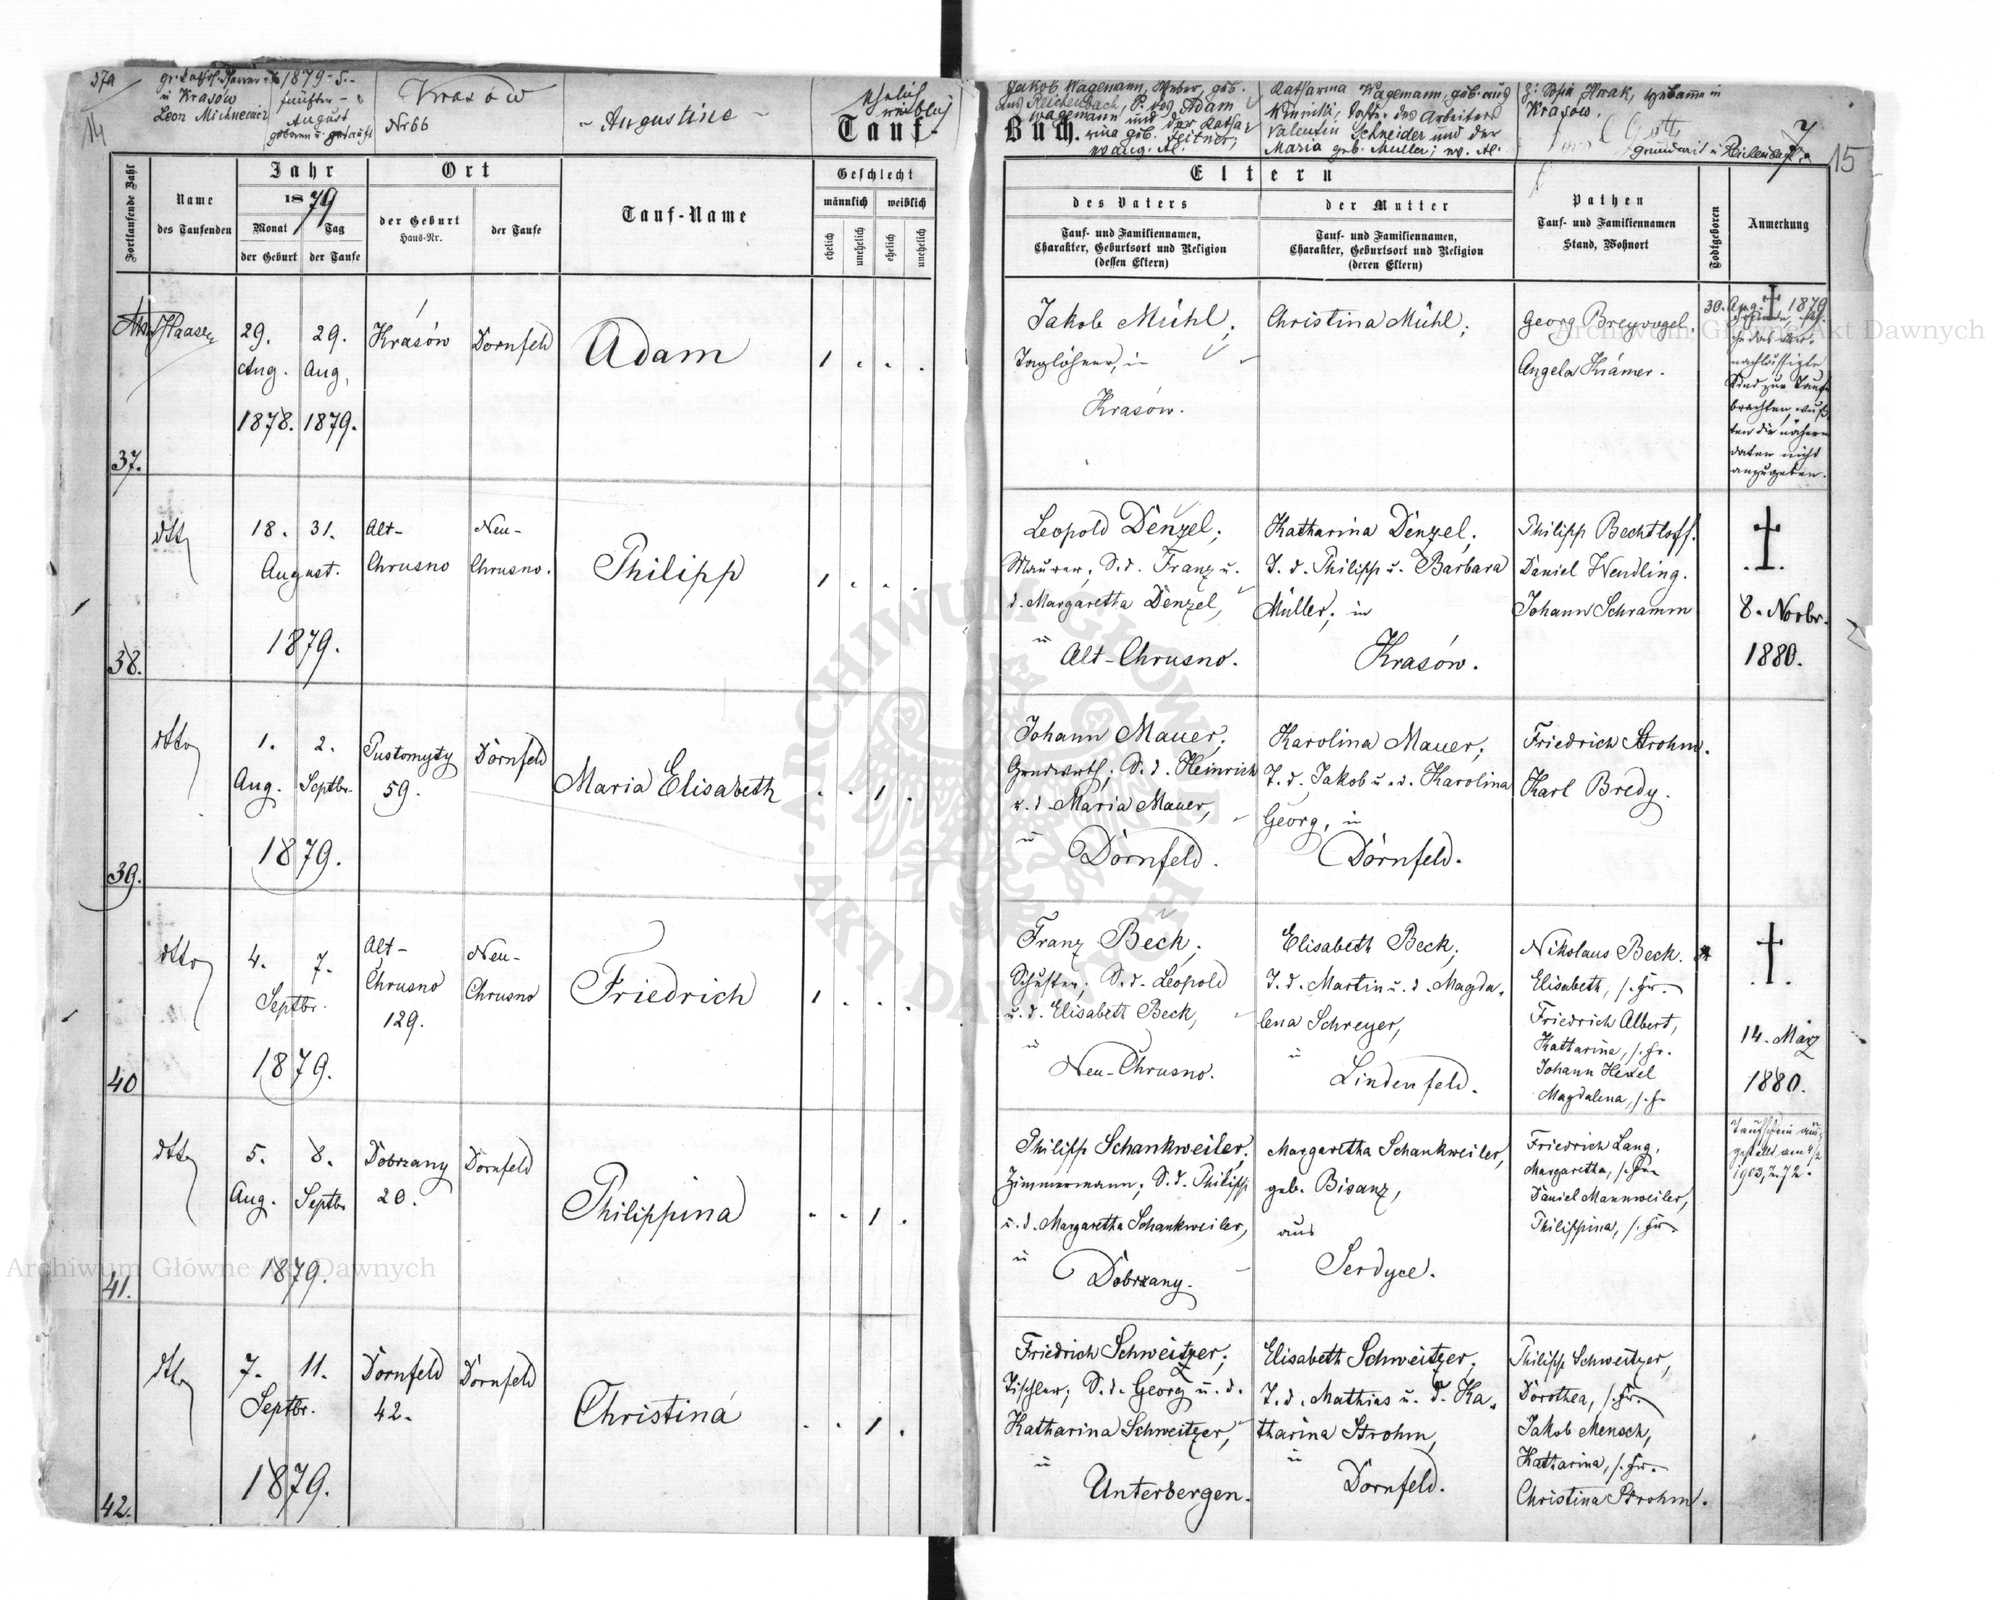 37a
14
gr. kathol. Pfarrer
in Krasów
Leon Michnewicz
1879 - 5. -
fünfter -
August
geboren u. getauft
Krasów
Nr 66
- Augustine -
ehelich
weiblich
Jakob Wagemann, Weber, geb.
aus Reichenbach, S. des Adam
Wagemann und der Katha-
rina geb. Zeitner,
ev. aug. Al.
Katharina Wagemann, geb. aus
Winniki, Tocht. des Arbeiters
Valentin Schneider und der
Maria geb. Müller; ev. Al.
Z: Sofia Hrak, Hebamme in
Krasów.
Grundwirt
7
15
Tauf-Buch.
Fortlaufende Zahl
Name
des Taufenden
Jahr
1879
Monat
der Geburt
Tag
der Taufe
Ort
der Geburt
Haus-Nr.
der Taufe
Tauf-Name
Geschlecht
männlich
weiblich
ehelich
unehelich
ehelich
unehelich
Eltern
des Vaters
Tauf- und Familiennamen,
Charakter, Geburtsort und Religion
(dessen Eltern)
der Mutter
Tauf- und Familiennamen,
Charakter, Geburtsort und Religion
(deren Eltern)
Pathen
Tauf- und Familiennamen
Stand, Wohnort
Todtgeboren
Anmerkung
37.
Haase
29.
Aug.
1878.
29.
Aug.
1879.
Krasów
Dornfeld
Adam
1 . . .
Jakob Mühl;
Taglöhner, in
Krasów.
Christina Mühl;
Georg Breyvogel.
Angela Krämer.
30. Aug. 1879
nachlässigte
Kind zur Taufe
brachten, wuß-
ten die nähern
daten nicht
anzugeben.
38.
dtto
18. 31.
August.
1879.
Alt-
Chrusno
Neu-
Chrusno.
Philipp
1 . . .
Leopold Denzel;
Maurer, S. d. Franz u.
d. Margaretha Denzel,
in
Alt-Chrusno.
Katharina Denzel;
T. d. Philipp u. Barbara
Müller; in
Krasów.
Philipp Bechtloff.
Daniel Wendling.
Johann Schramm
8. Novbr.
1880.
39.
dtto
1. 2.
Aug. Septbr.
1879.
Pustomyty
59.
Dornfeld
Maria Elisabeth
. . 1 .
Johann Mauer;
Grundwirth; S. d. Heinrich
u. d. Maria Mauer,
in
Dornfeld.
Karolina Mauer;
T. d. Jakob u. d. Karolina
Georg, in
Dornfeld.
Friedrich Strohm.
Karl Bredy.
40
dtto
4. 7.
Septbr.
1879.
Alt-
Chrusno
129.
Neu-
Chrusno
Friedrich
1 . . .
Franz Beck;
Schuster; S. d. Leopold
u. d. Elisabeth Beck,
in
Neu-Chrusno.
Elisabeth Beck;
T. d. Martin u. d. Magda-
lena Schreyer,
in
Lindenfeld.
Nikolaus Beck.
Elisabeth, s. Fr.
Friedrich Albert,
Katharina, s. Fr.
Johann Hexel
Magdalena, s. Fr.
14. März
1880.
41.
dtto
5. 8.
Aug. Septbr.
1879.
Dobrzany
20.
Dornfeld
Philippina
. . 1 .
Philipp Schankweiler,
Zimmermann; S. d. Philipp
u. d. Margaretha Schankweiler,
in
Dobrzany.
Margaretha Schankweiler,
geb. Bisanz,
aus
Serdyce.
Friedrich Lang,
Margaretta, s. Fr.
Daniel Mannweiler,
Philippina, s. Fr.
Taufschein aus-
gestellt am
42.
dtto
7. 11.
Septbr.
1879.
Dornfeld
42.
Dornfeld
Christina
. . 1 .
Friedrich Schweitzer;
Tischler; S. d. Georg u. d.
Katharina Schweitzer,
in
Unterbergen.
Elisabeth Schweitzer;
T. d. Mathias u. d. Ka-
tharina Strohm,
in
Dornfeld.
Philipp Schweitzer,
Dorothea, s. Fr.
Jakob Mensch,
Katharina, s. Fr.
Christina Strohm.
Archiwum Główne Akt Dawnych
Archiwum Główne Akt Dawnych
ARCHIWUM GŁÓWNE AKT DAWNYCH